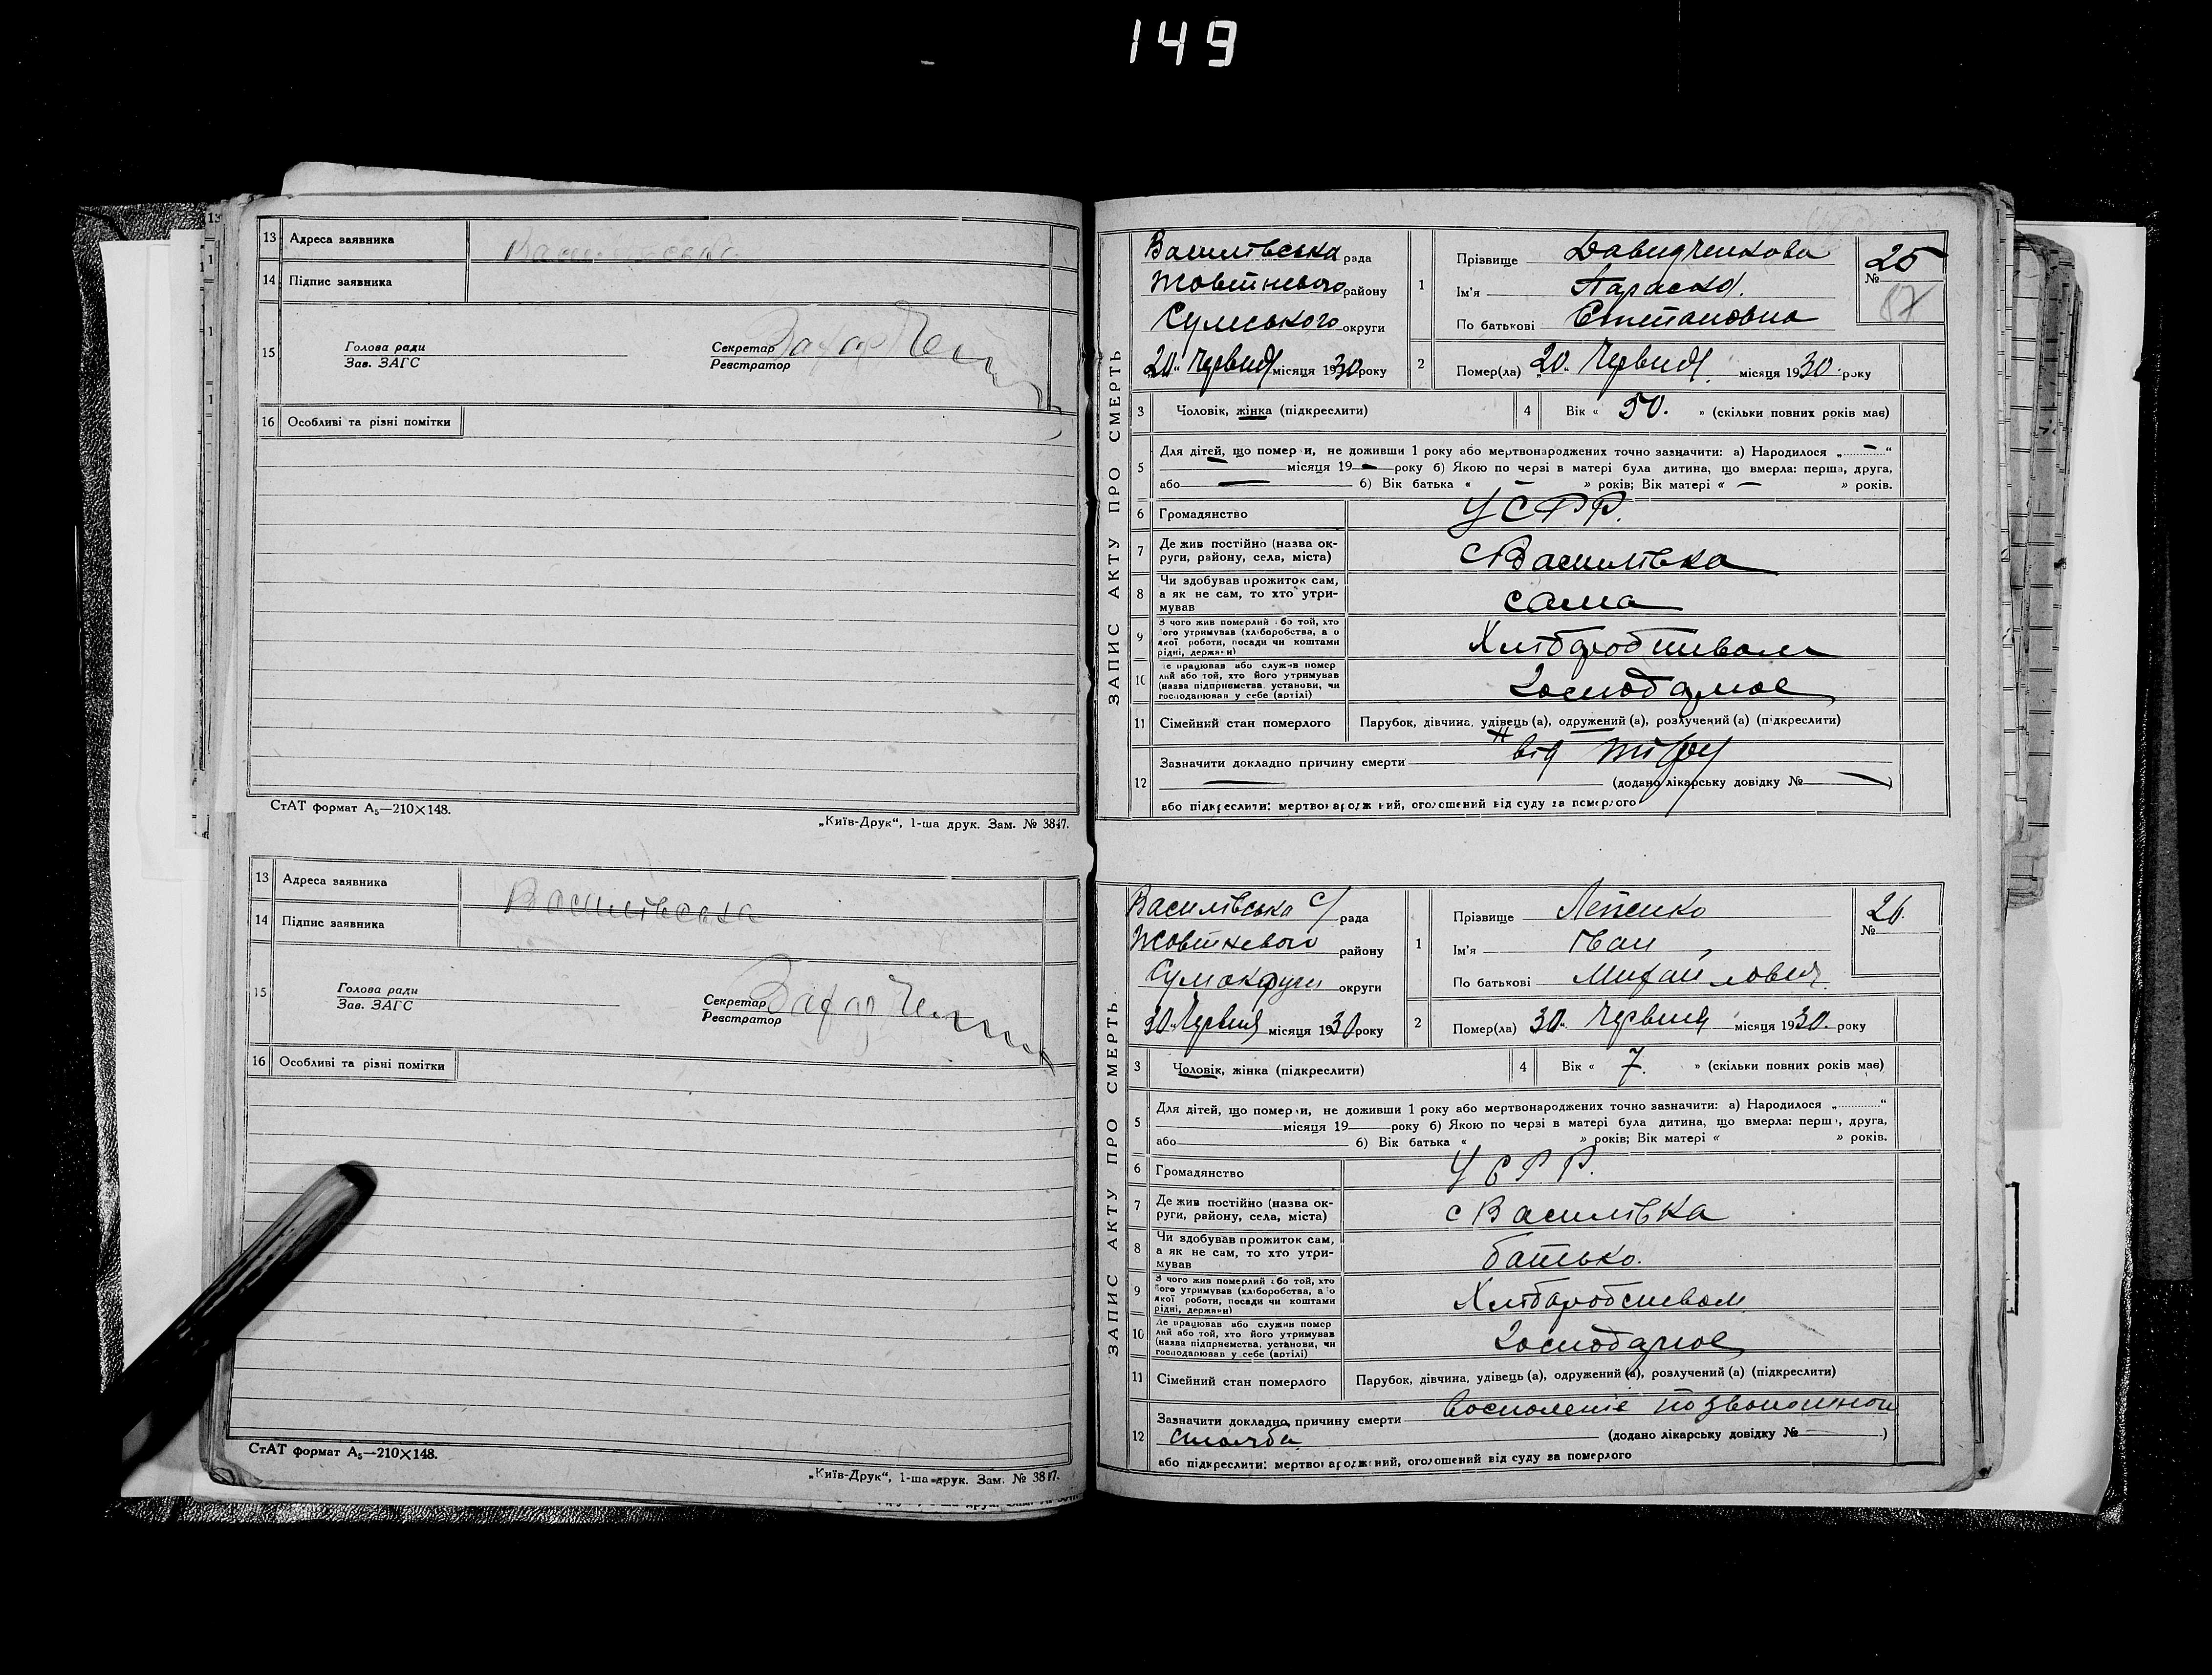 149
13 Адреса заявника
14 Підпис заявника
15 Голова ради
Зав. ЗАГС
Секретар
Реєстратор
16 Особливі та різні помітки
СтАТ формат А₅—210×148.
„Київ-Друк“, 1-ша друк. Зам. № 3847.
13 Адреса заявника
Василівська
14 Підпис заявника
15 Голова ради
Зав. ЗАГС
Секретар
Реєстратор
16 Особливі та різні помітки
СтАТ формат А₅—210×148.
„Київ-Друк“, 1-ша друк. Зам. № 3847.
ЗАПИС АКТУ ПРО СМЕРТЬ
Василівська рада
Жовтневого району
Сумського округи
„20“ Червня місяця 1930 року
1 Прізвище Давидченкова
Ім'я Параска
По батькові Степановна
№ 25
87
2 Помер(ла) „20“ Червня місяця 1930 року
3 Чоловік, жінка (підкреслити)
4 Вік « 50. » (скільки повних років має)
5 Для дітей, що померли, не доживши 1 року або мертвонароджених точно зазначити: а) Народилося „—“
місяця 19— року б) Якою по черзі в матері була дитина, що вмерла: перша, друга,
або — б) Вік батька « — » років; Вік матері « — » років.
6 Громадянство УСРР.
7 Де жив постійно (назва округи, району, села, міста) с Василівка
8 Чи здобував прожиток сам, а як не сам, то хто утримував сама
9 З чого жив померлий або той, хто його утримував (хліборобства, а о якої роботи, посади чи коштами рідні, держави) Хліборобством
10 Де працював або служив померлий або той, хто його утримував (назва підприємства, установи, чи господарював у себе (артілі)
11 Сімейний стан померлого Парубок, дівчина, удівець (а), одружений (а), розлучений (а) (підкреслити)
12 Зазначити докладно причину смерти від тифу
— (додано лікарську довідку № —)
або підкреслити: мертвонароджений, оголошений від суду за померлого
ЗАПИС АКТУ ПРО СМЕРТЬ
Василівська с/рада
Жовтневого району
Сумокруги округи
„30“ Червня місяця 1930 року
1 Прізвище Лепенко
Ім'я Іван
По батькові Михайлович
№ 26.
2 Помер(ла) „30“ Червня місяця 1930 року
3 Чоловік, жінка (підкреслити)
4 Вік « 7. » (скільки повних років має)
5 Для дітей, що померли, не доживши 1 року або мертвонароджених точно зазначити: а) Народилося „ “
місяця 19 року б) Якою по черзі в матері була дитина, що вмерла: перша, друга,
або б) Вік батька « » років; Вік матері « » років.
6 Громадянство УСРР.
7 Де жив постійно (назва округи, району, села, міста) с Василівка
8 Чи здобував прожиток сам, а як не сам, то хто утримував батько.
9 З чого жив померлий або той, хто його утримував (хліборобства, а о якої роботи, посади чи коштами рідні, держави) Хліборобством
10 Де працював або служив померлий або той, хто його утримував (назва підприємства, установи, чи господарював у себе (артілі)
11 Сімейний стан померлого Парубок, дівчина, удівець (а), одружений (а), розлучений (а) (підкреслити)
12 Зазначити докладно причину смерти Восполеніе позвоночной
столба (додано лікарську довідку № —)
або підкреслити: мертвонароджений, оголошений від суду за померлого